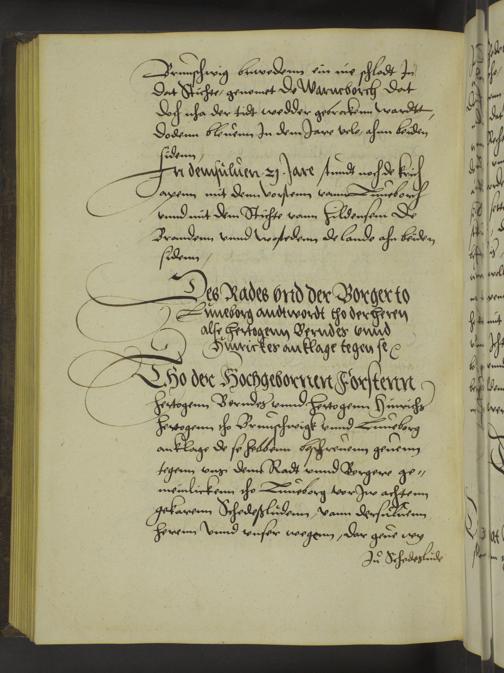 Brunschwig buwedenn ein nie schlodt In
dat Stichte, genomet de Warneborch Dat
doch nha der tidt wedder gebroken wardtt,
dodenn bleuenn In dem Jare vele, ahn beiden
sidenn,
In demsuluen 21. Jare, stundt noch de krich
apenn mit dem vorstenn vann Luneborch
vnnd mit dem Stichte vann Hildensem De
Branden vnnd wostedenn de lande ahn beiden
sidenn,
Des Rades vnd der Borger to
Luneborg andtwordt tho der heren
alse hertogenn Berndes vnnd
Hinrickes anklage tegen se
Tho der Hochgebornen Forstenn
hertogenn Berndes vnnd hertogenn Hinrichs
hertogenn tho Brunschwigk vnnd Luneborg
anklage de se hebbenn geuenn
tegenn vns dem Radt vnnd Borgere ge-
meinlickenn tho Luneborg vor Jw achtenn
gekarenn Schedesludenn, vann dersuluenn
herenn vnnd vnser wegenn, dar geue wy
Ju Schedeslude